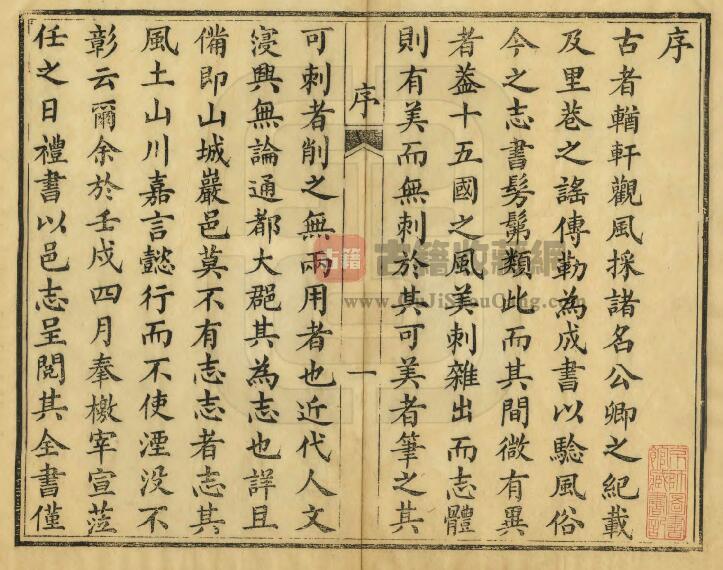 序
古者輶軒觀風採諸名公卿之紀載
及里巷之謠傳勒為成書以騐風俗
今之志書髣髴類此而其間微有異
者葢十五國之風美刺雜出而志體
則有美而無刺於其可美者筆之其
序
一
可刺者削之無兩用者也近代人文
寖興無論通都大郡其為志也詳且
備即山城巖邑莫不有志志者志其
風土山川嘉言懿行而不使湮沒不
彰云爾余於壬戌四月奉檄宰宣蒞
任之日禮書以邑志呈閱其全書僅
古籍
古籍收藏網
www.GuJiShouCang.com